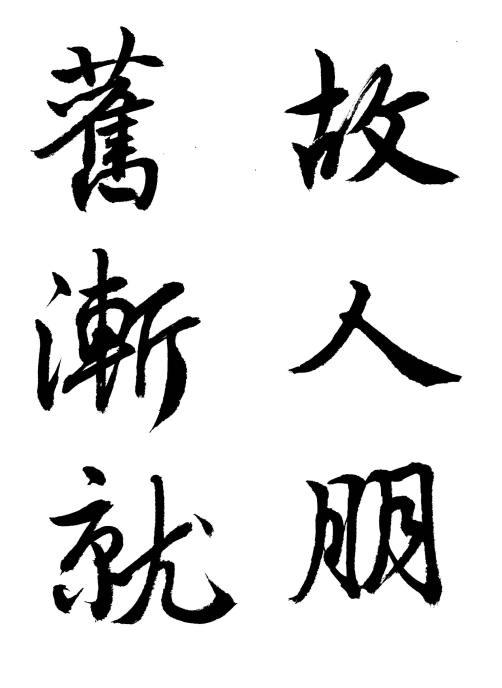 故人朋
舊漸就